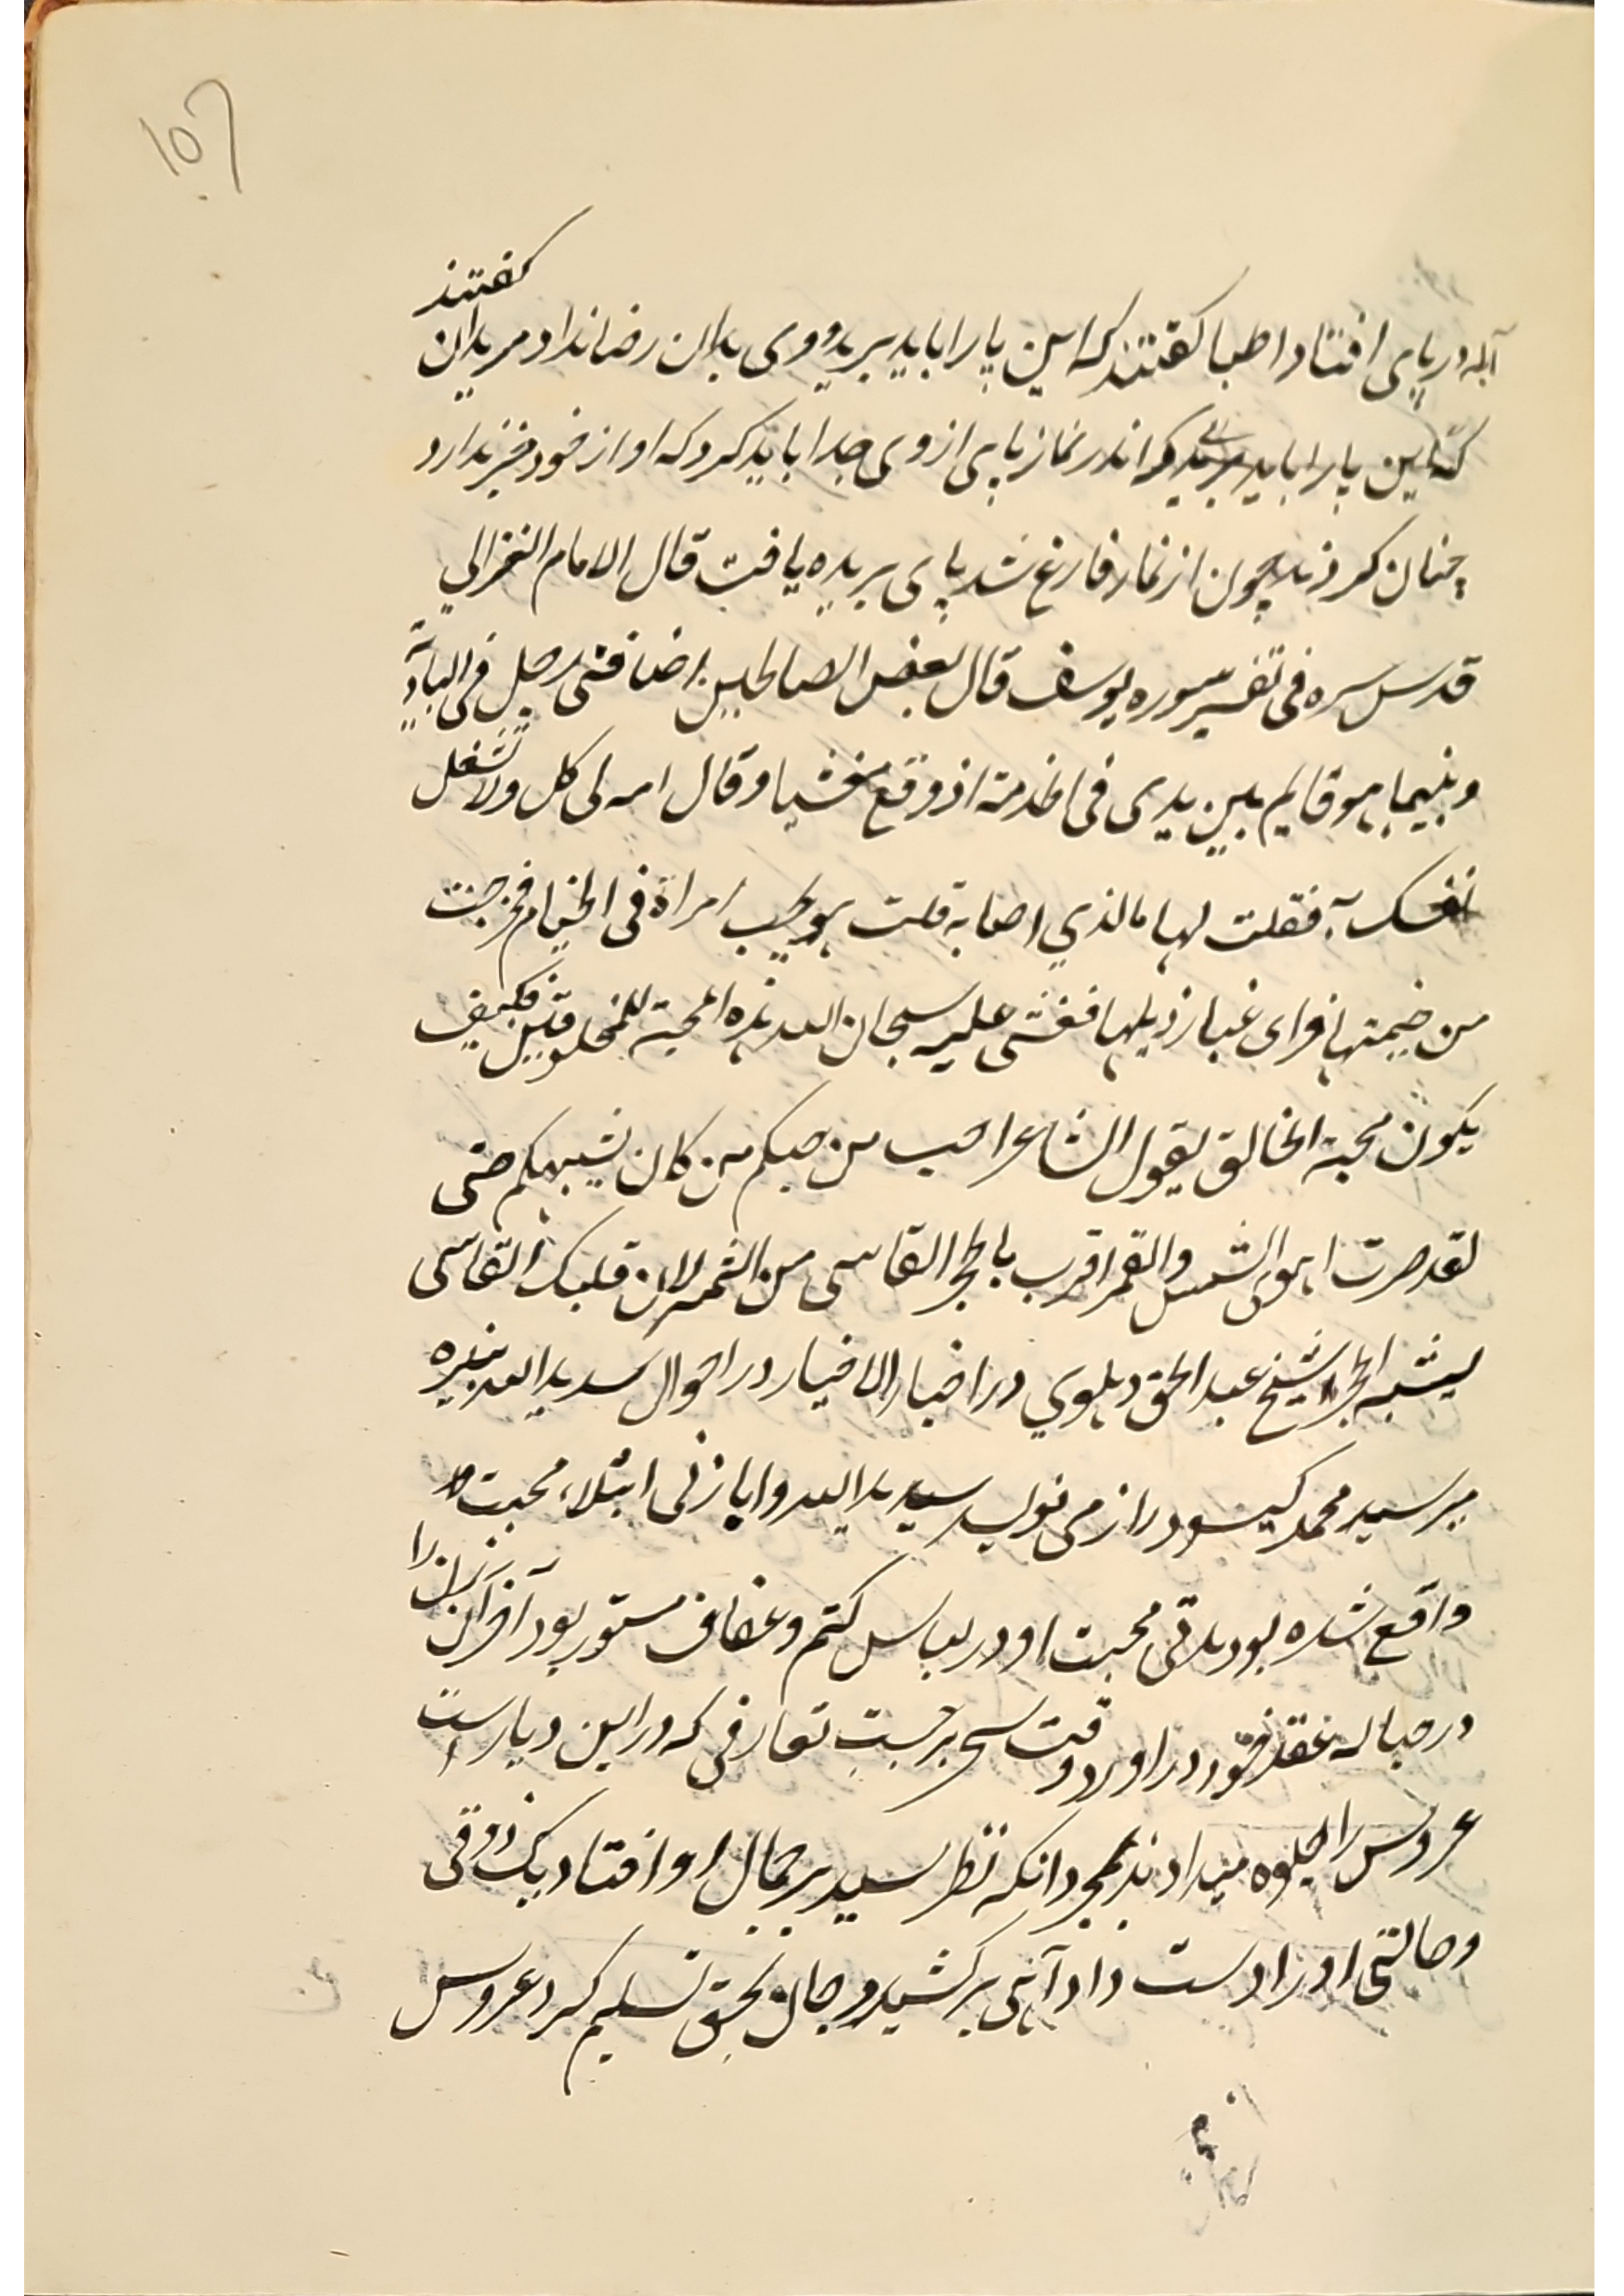 گفتند
آبله در پای افتاد اطبا گفتند که این پا را باید برید و وی بدان رضا نداد مریدان
که این پا را باید برید که اندر نماز پای از وی جدا باید کرد که او از خود خبر ندارد
چنان کردند چون از نماز فارغ شد پای بریده یافت قال الامام الغزالي
قدس سره فی تفسیر سوره یوسف قال بعض الصالحین اضافنی رجل فی البادیة
وبینما هو قایم بین یدی فی الخدمة اذ وقع مغشیا وقال امه لی کل ولا تشغل
نفسک به فقلت لها ما الذي اصابه قلت هو یحب امراة فی الخیام فخرجت
من خیمتها فرای غبار ذیلها فغشی علیه سبحان الله هذه المحبة للمخلوقین فکیف
یکون محبة الخالق یقول الشاعر احب من حبکم من کان یشبهکم حتی
لقد صرت اهوی الشمس والقمر اقرب بالحجر القاسی من الثمر لان قلبک القاسی
یشبه الحجرا شیخ عبد الحق دهلوي در اخبار الاخیار در احوال سید ید الله نبیره
میر سید محمد گیسو دراز می نویسد سید ید الله را با زنی ابتلاء محبت
واقع شده بود مدتی محبت او در لباس کتم و عفاف مستور بود آخر آن زن را
در حباله عقد خود در آورد وقت سحر بر حسب تعارفی که در این دیار است
عروس را جلوه میدادند بمجرد آنکه نظر سید بر جمال او افتاد یک ذوقی
و حالتی او را دست داد آهی برکشید و جان بحق تسلیم کرد عروس